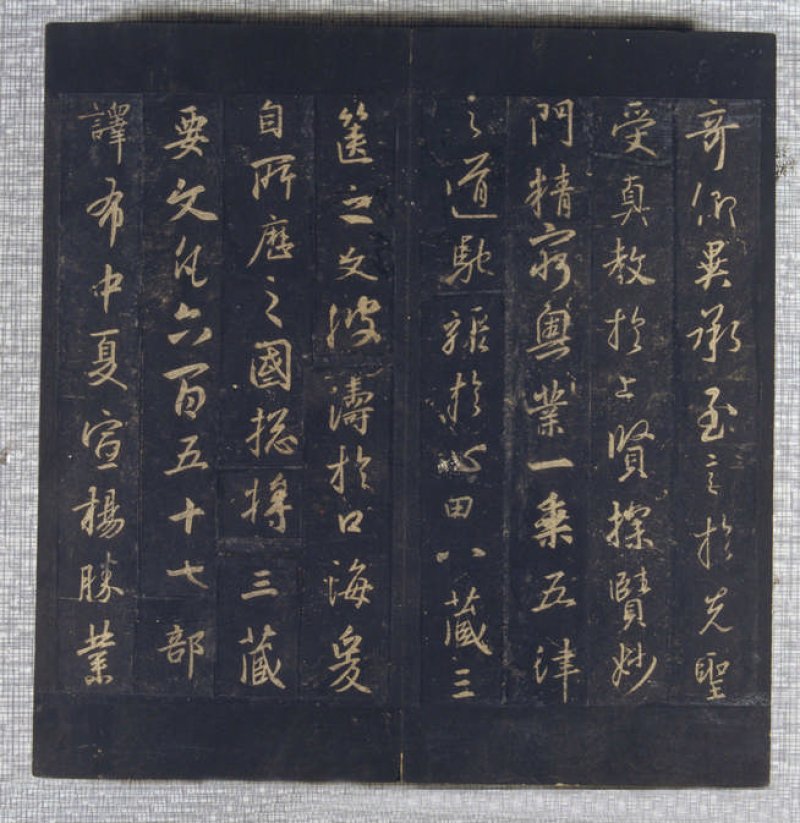 奇仰異承至言於先聖
受真教於上賢探賾妙
門精窮奧業一乘五律
之道馳驟於心田八藏三
篋之文波濤於口海爰
自所歷之國總將三藏
要文凡六百五十七部
譯布中夏宣楊勝業